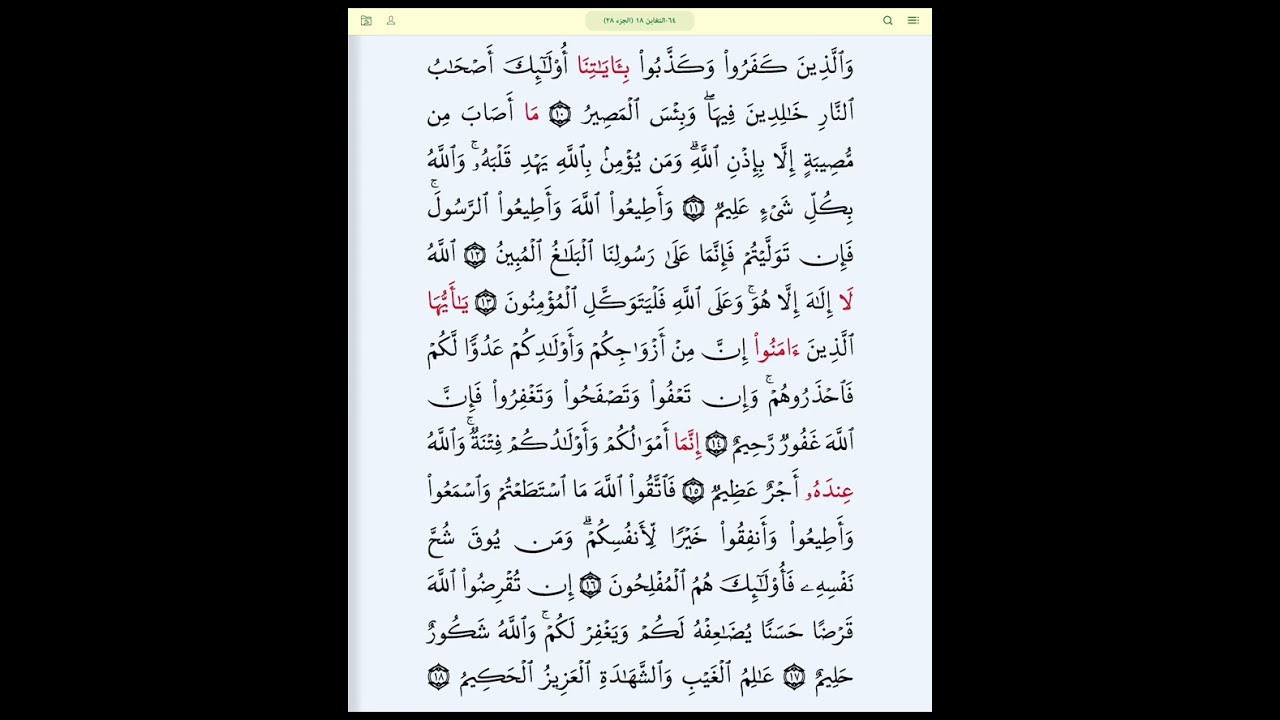 ٦٤-التغابن ١٨ (الجزء ٢٨)
وَٱلَّذِينَ كَفَرُواْ وَكَذَّبُواْ بِـَٔايَٰتِنَآ أُوْلَٰٓئِكَ أَصۡحَٰبُ
ٱلنَّارِ خَٰلِدِينَ فِيهَاۖ وَبِئۡسَ ٱلۡمَصِيرُ ١٠ مَآ أَصَابَ مِن
مُّصِيبَةٍ إِلَّا بِإِذۡنِ ٱللَّهِۗ وَمَن يُؤۡمِنۢ بِٱللَّهِ يَهۡدِ قَلۡبَهُۥۚ وَٱللَّهُ
بِكُلِّ شَيۡءٍ عَلِيمٞ ١١ وَأَطِيعُواْ ٱللَّهَ وَأَطِيعُواْ ٱلرَّسُولَۚ
فَإِن تَوَلَّيۡتُمۡ فَإِنَّمَا عَلَىٰ رَسُولِنَا ٱلۡبَلَٰغُ ٱلۡمُبِينُ ١٢ ٱللَّهُ
لَآ إِلَٰهَ إِلَّا هُوَۚ وَعَلَى ٱللَّهِ فَلۡيَتَوَكَّلِ ٱلۡمُؤۡمِنُونَ ١٣ يَٰٓأَيُّهَا
ٱلَّذِينَ ءَامَنُوٓاْ إِنَّ مِنۡ أَزۡوَٰجِكُمۡ وَأَوۡلَٰدِكُمۡ عَدُوّٗا لَّكُمۡ
فَٱحۡذَرُوهُمۡۚ وَإِن تَعۡفُواْ وَتَصۡفَحُواْ وَتَغۡفِرُواْ فَإِنَّ
ٱللَّهَ غَفُورٞ رَّحِيمٌ ١٤ إِنَّمَآ أَمۡوَٰلُكُمۡ وَأَوۡلَٰدُكُمۡ فِتۡنَةٞۚ وَٱللَّهُ
عِندَهُۥٓ أَجۡرٌ عَظِيمٞ ١٥ فَٱتَّقُواْ ٱللَّهَ مَا ٱسۡتَطَعۡتُمۡ وَٱسۡمَعُواْ
وَأَطِيعُواْ وَأَنفِقُواْ خَيۡرٗا لِّأَنفُسِكُمۡۗ وَمَن يُوقَ شُحَّ
نَفۡسِهِۦ فَأُوْلَٰٓئِكَ هُمُ ٱلۡمُفۡلِحُونَ ١٦ إِن تُقۡرِضُواْ ٱللَّهَ
قَرۡضًا حَسَنٗا يُضَٰعِفۡهُ لَكُمۡ وَيَغۡفِرۡ لَكُمۡۚ وَٱللَّهُ شَكُورٌ
حَلِيمٌ ١٧ عَٰلِمُ ٱلۡغَيۡبِ وَٱلشَّهَٰدَةِ ٱلۡعَزِيزُ ٱلۡحَكِيمُ ١٨